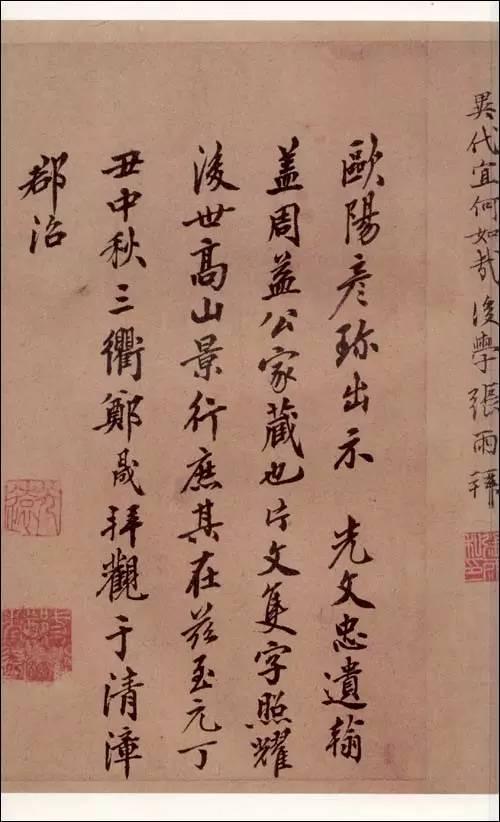 異代宜何如哉後學張雨拜
歐陽彦珎出示 先文忠遺翰
盖周益公家藏也片文隻字照耀
後世高山景行庶其在兹至元丁
丑中秋三衢鄭晟拜觀于清漳
郡治